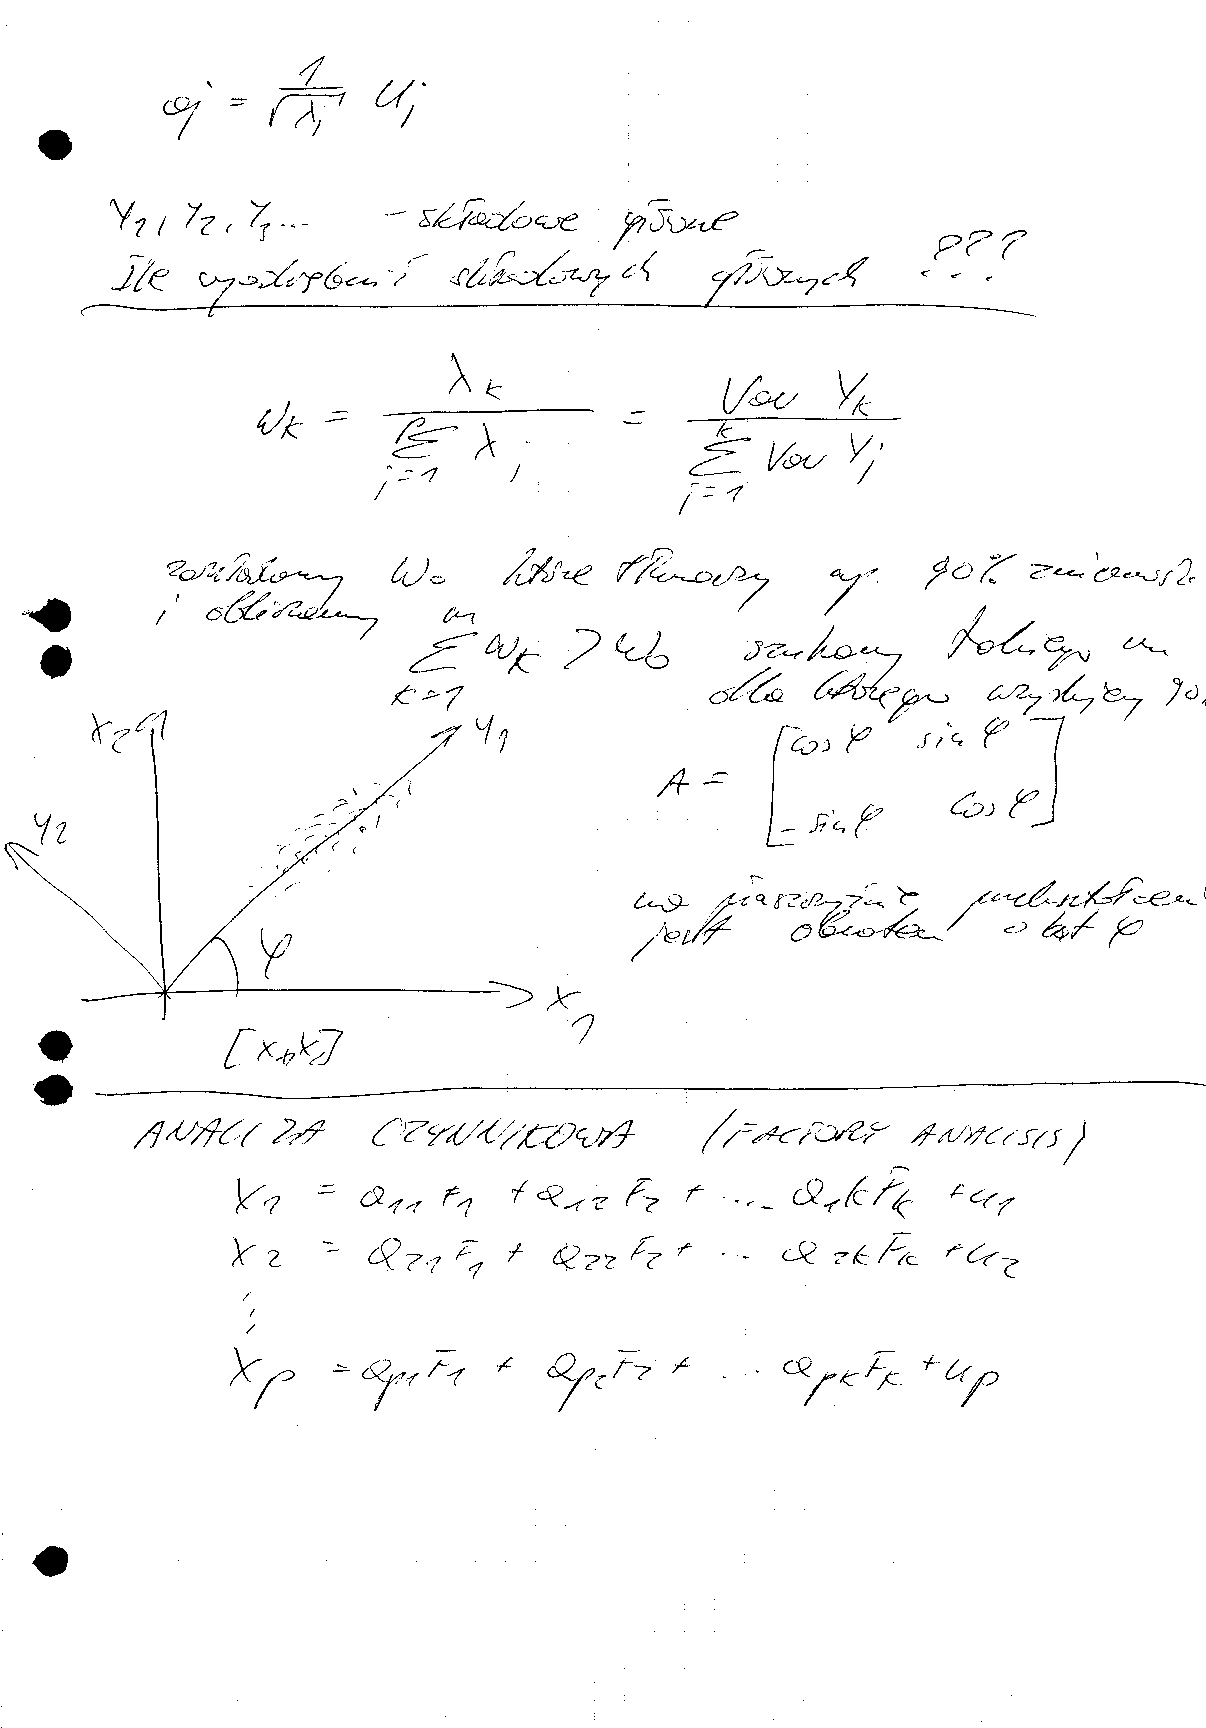 aj = 1/√λj Uj
Y1, Y2, Y3... - składowe główne
Ile wyodrębnić składowych głównych ???
wK = λK / Σ(j=1, p) λj = Var YK / Σ(j=1, k) Var Yj
zakładamy W0 które tłumaczy np. 90%
i obliczamy
Σ(K=1, m) wK > w0 szukamy takiego m
dla którego 90
x2 y1
A = [cosφ sinφ
-sinφ cosφ]
y2
na płaszczyźnie
jest obrotem o kąt φ
φ
x1
[x1, x2]
ANALIZA CZYNNIKOWA (FACTORY ANALISIS)
X1 = a11F1 + a12F2 + ... a1kFk + u1
X2 = a21F1 + a22F2 + ... a2kFk + u2
⋮
Xp = ap1F1 + ap2F2 + ... apkFk + up